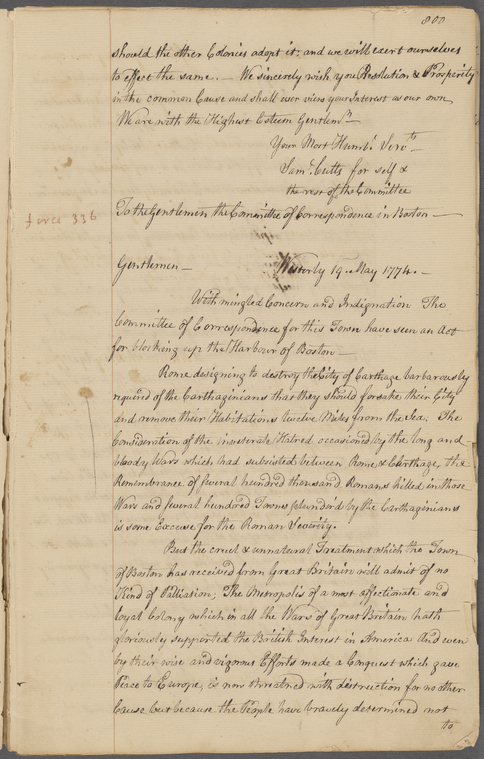 800
should the other Colonies adopt it: and we will exert ourselves
to effect the same. — We sincerely wish you Resolution & Prosperity
in the common Cause and shall ever view your Interest as our own
We are with the Highest Esteem Gentlemn —
Your Most Humbl. Servts
Saml. Cutts for self &
the rest of the Committee
To the Gentlemen the Committee of Correspondence in Boston —
force 336
Gentlemen — Westerly 19. May 1774. —
With mingled Concern and Indignation The
Committee of Correspondence for this Town have seen an Act
for blocking up the Harbour of Boston —
Rome designing to destroy the City of Carthage barbarously
required of the Carthaginians that they should forsake their City
and remove their Habitations twelve Miles from the Sea. The
Consideration of the inveterate Hatred occasioned by the long and
bloody Wars which had subsisted between Rome & Carthage, the
Remembrance of several hundred thousand Romans killed in those
Wars and several hundred Towns plunder'd by the Carthaginians
is some Excuse for the Roman Severity.
But the cruel & unnatural Treatment which the Town
of Boston has received from Great Britain will admit of no
Kind of Palliation; The Metropolis of a most affectionate and
loyal Colony which in all the Wars of Great Britain hath
gloriously supported the British Interest in America and even
by their wise and vigorous Efforts made a Conquest which gave
Peace to Europe, is now threatned with distruction for no other
Cause but because the People have bravely determined not
to